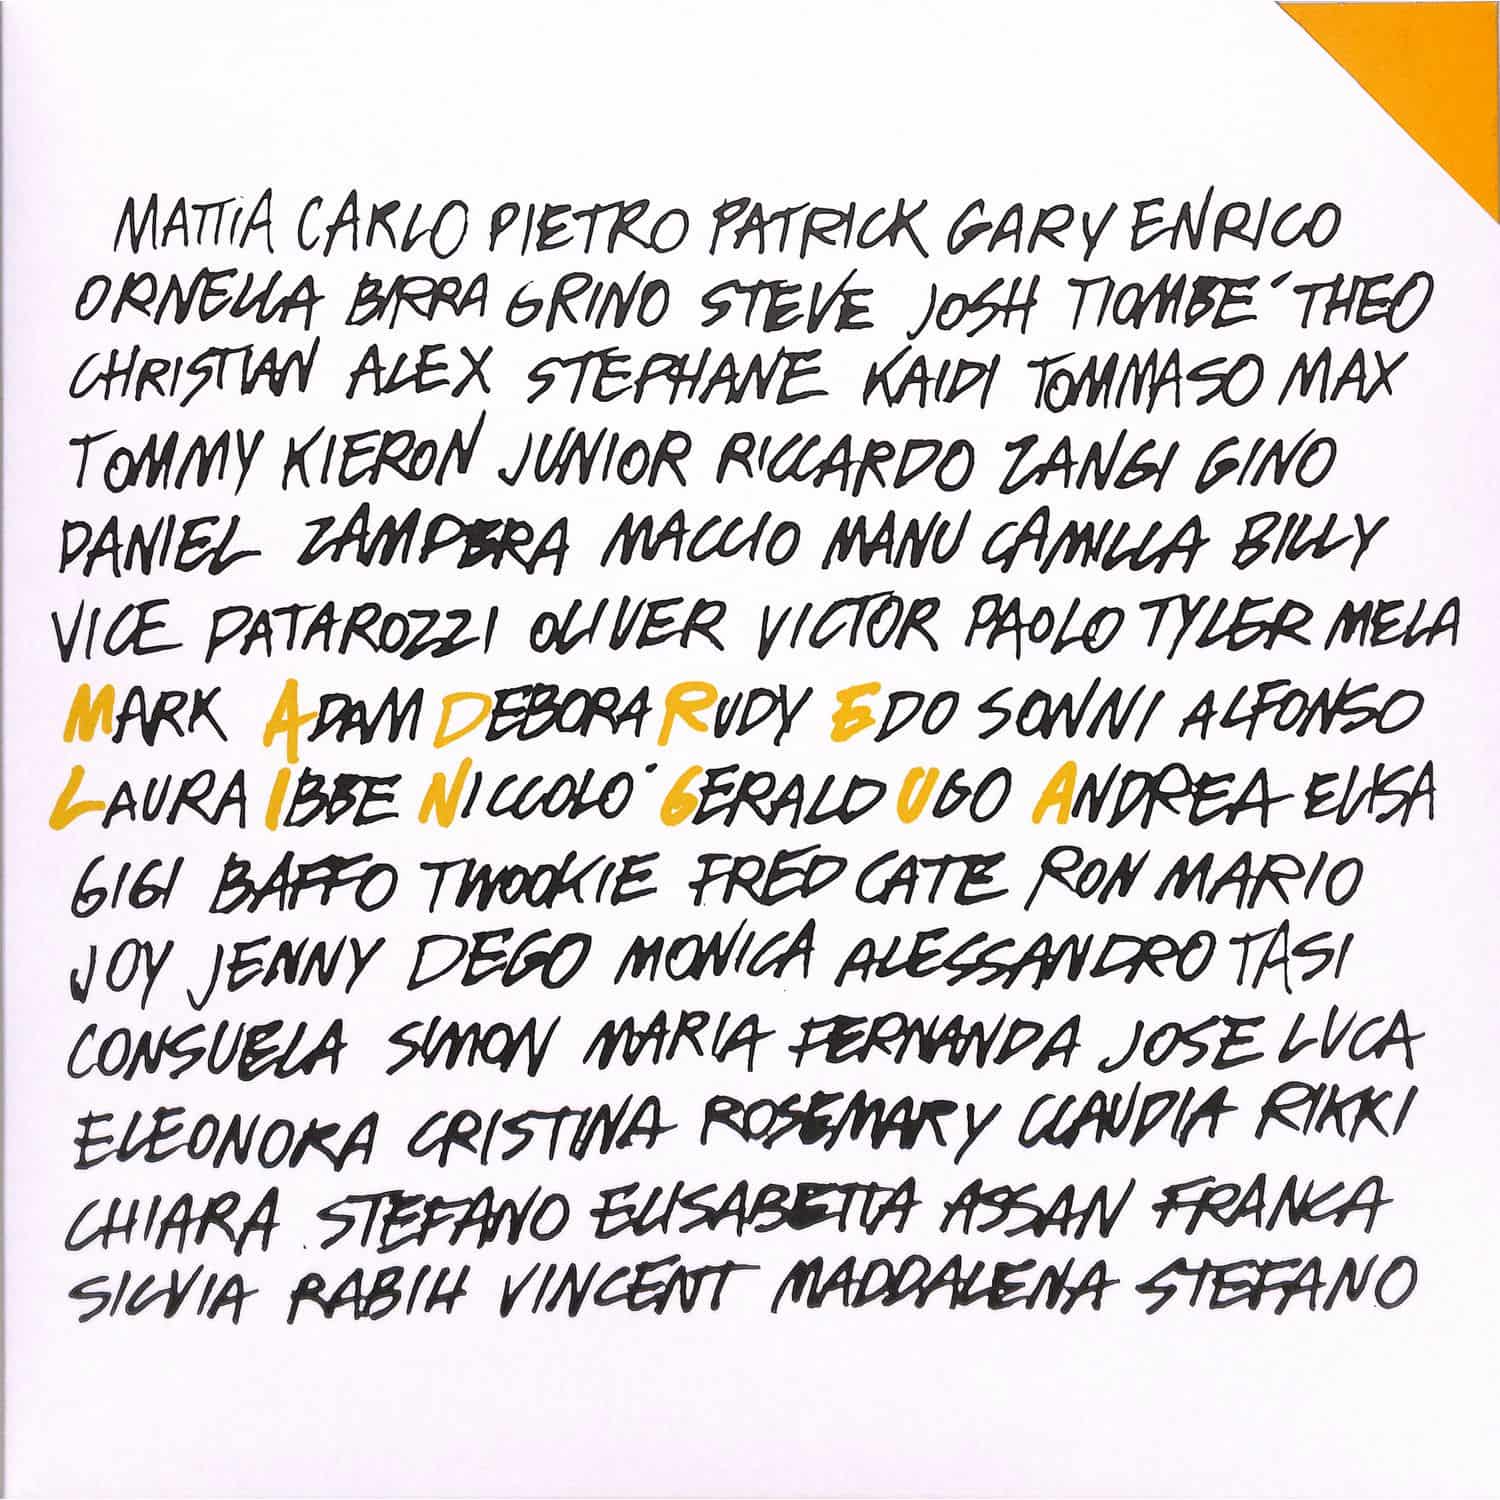 MATTIA CARLO PIETRO PATRICK GARY ENRICO
ORNELLA BIRRA GRINO STEVE JOSH TIOMBE´ THEO
CHRISTIAN ALEX STEPHANE KAIDI TOMMASO MAX
TOMMY KIERON JUNIOR RICCARDO ZANGI GINO
DANIEL ZAMPERA MACCIO MANU CAMILLA BILLY
VICE PATAROZZI OLIVER VICTOR PAOLO TYLER MELA
MARK ADAM DEBORA RUDY EDO SONNI ALFONSO
LAURA IBBE NICCOLO´ GERALD UGO ANDREA ELISA
GIGI BAFFO TWOOKIE FRED CATE RON MARIO
JOY JENNY DEGO MONICA ALESSANDRO TASI
CONSUELA SIMON MARIA FERNANDA JOSE LUCA
ELEONORA CRISTINA ROSEMARY CLAUDIA RIKKI
CHIARA STEFANO ELISABETTA ASSAN FRANCA
SILVIA RABIH VINCENT MADDALENA STEFANO